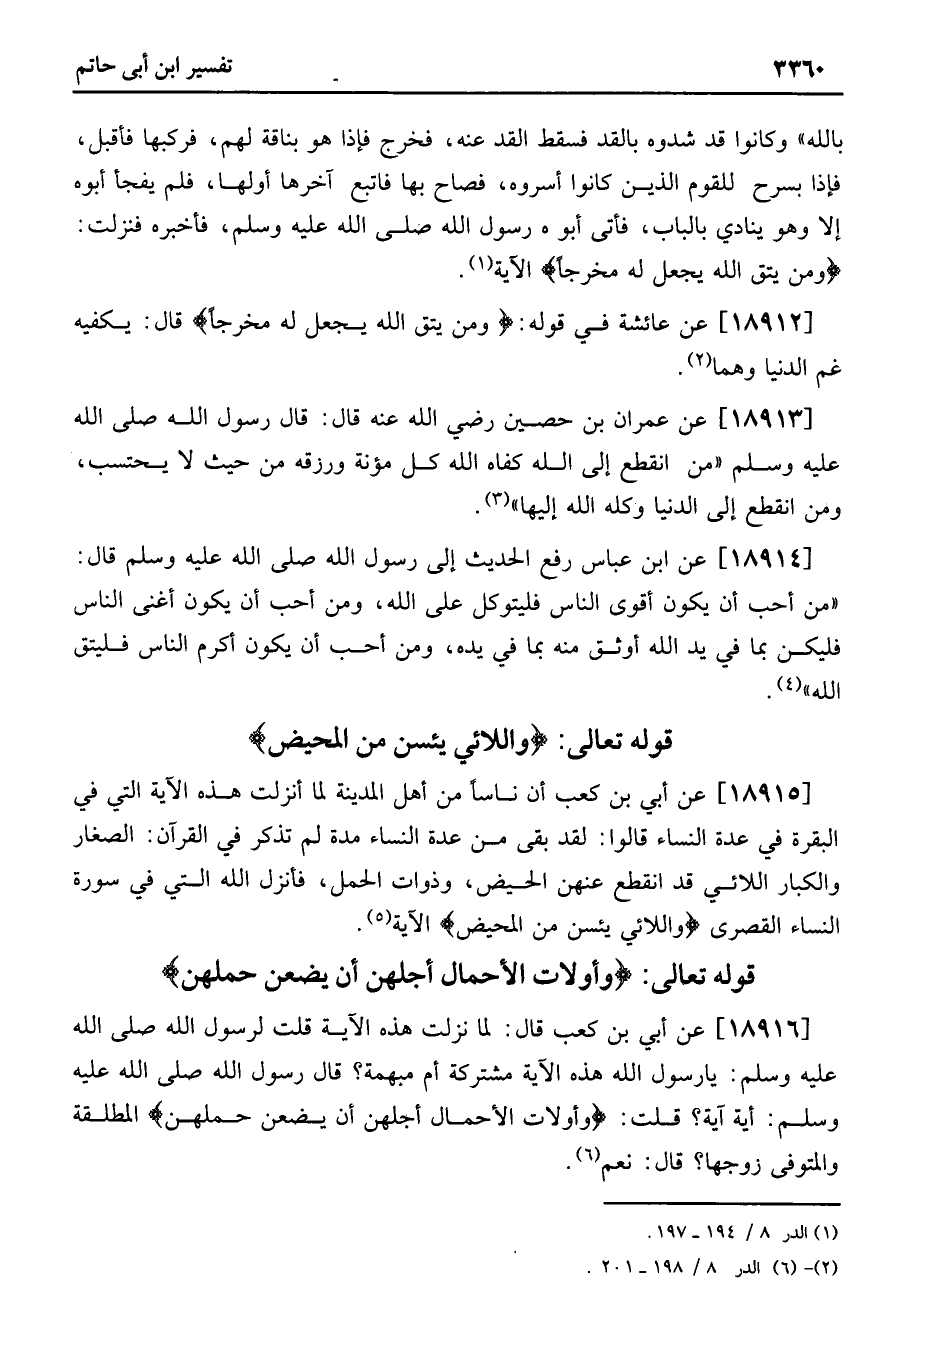 ٣٣٦٠ تفسير ابن أبى حاتم
بالله» وكانوا قد شدوه بالقد فسقط القد عنه، فخرج فإذا هو بناقة لهم، فركبها فأقبل،
فإذا بسرح للقوم الذين كانوا أسروه، فصاح بها فاتبع آخرها أولها، فلم يفجأ أبوه
إلا وهو ينادي بالباب، فأتى أبو ه رسول الله صلى الله عليه وسلم، فأخبره فنزلت:
﴿ومن يتق الله يجعل له مخرجاً﴾ الآية(١).
[١٨٩١٢] عن عائشة في قوله: ﴿ ومن يتق الله يجعل له مخرجاً﴾ قال: يكفيه
غم الدنيا وهما(٢).
[١٨٩١٣] عن عمران بن حصين رضي الله عنه قال: قال رسول الله صلى الله
عليه وسلم «من انقطع إلى الله كفاه الله كل مؤنة ورزقه من حيث لا يحتسب،
ومن انقطع إلى الدنيا وكله الله إليها»(٣).
[١٨٩١٤] عن ابن عباس رفع الحديث إلى رسول الله صلى الله عليه وسلم قال:
«من أحب أن يكون أقوى الناس فليتوكل على الله، ومن أحب أن يكون أغنى الناس
فليكن بما في يد الله أوثق منه بما في يده، ومن أحب أن يكون أكرم الناس فليتق
الله»(٤).
قوله تعالى: ﴿واللائي يئسن من المحيض﴾
[١٨٩١٥] عن أبي بن كعب أن ناساً من أهل المدينة لما أنزلت هذه الآية التي في
البقرة في عدة النساء قالوا: لقد بقى من عدة النساء مدة لم تذكر في القرآن: الصغار
والكبار اللائي قد انقطع عنهن الحيض، وذوات الحمل، فأنزل الله التي في سورة
النساء القصرى ﴿واللائي يئسن من المحيض﴾ الآية(٥).
قوله تعالى: ﴿وأولات الأحمال أجلهن أن يضعن حملهن﴾
[١٨٩١٦] عن أبي بن كعب قال: لما نزلت هذه الآية قلت لرسول الله صلى الله
عليه وسلم: يارسول الله هذه الآية مشتركة أم مبهمة؟ قال رسول الله صلى الله عليه
وسلم: أية آية؟ قلت: ﴿وأولات الأحمال أجلهن أن يضعن حملهن﴾ المطلقة
والمتوفى زوجها؟ قال: نعم(٦).
(١) الدر ٨ / ١٩٤ ـ ١٩٧.
(٢)- (٦) الدر ٨ / ١٩٨ ـ ٢٠١ .